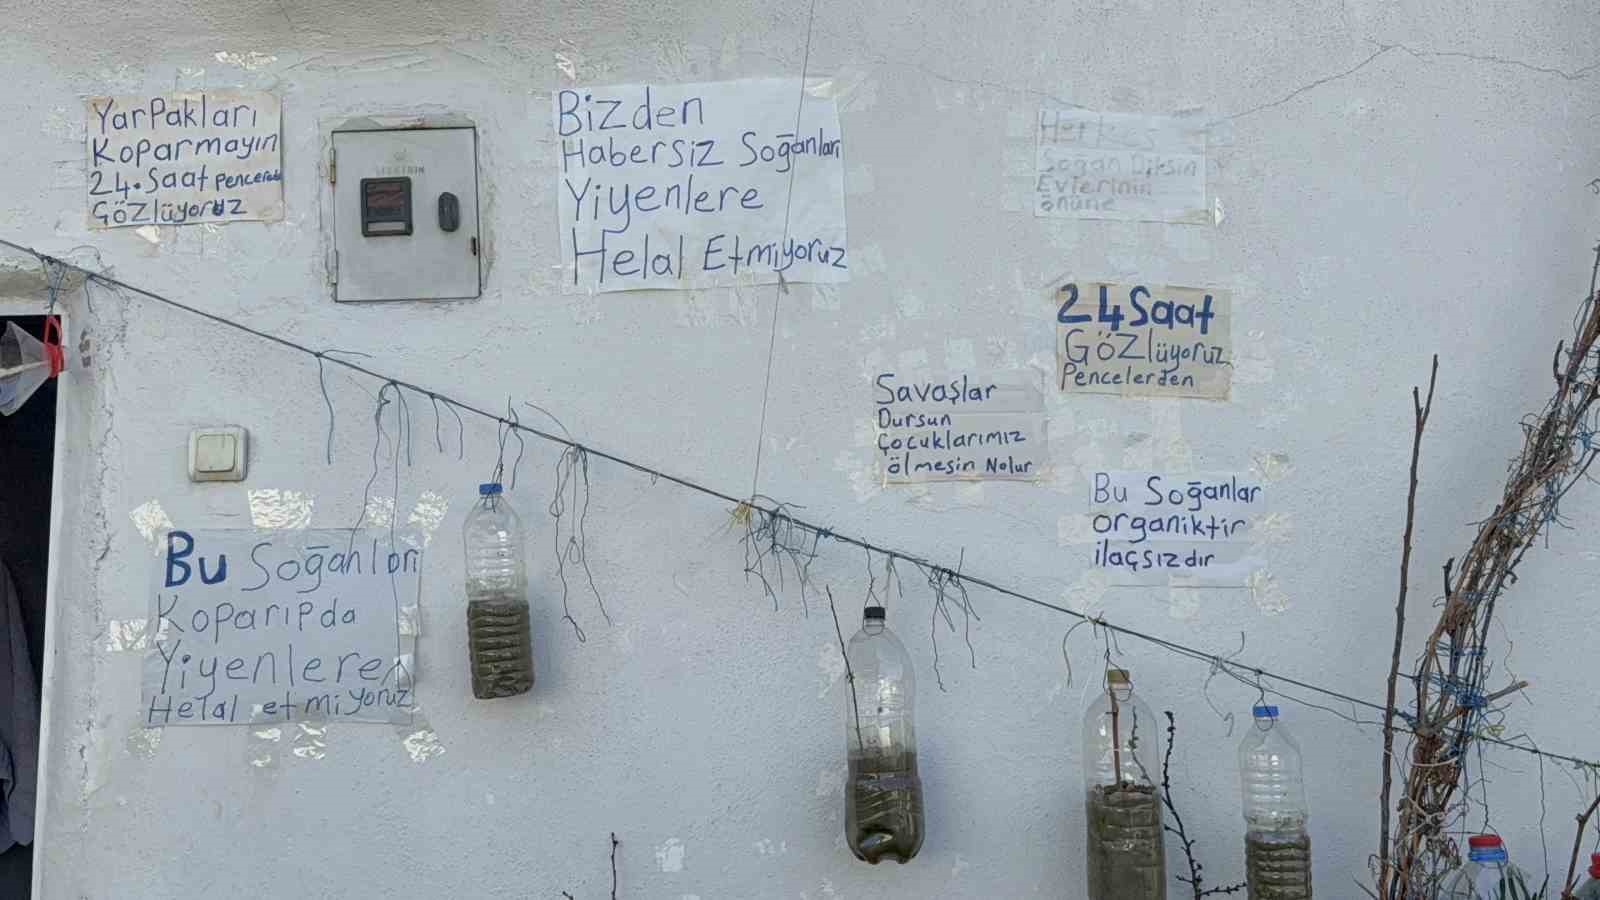 YarPakları
Koparmayın
24.Saat Pencereden
GÖZlüyoruz
ELEKTRİK
Bizden
Habersiz Soğanları
Yiyenlere
Helal Etmiyoruz
Herkes
Soğan Diksin
Evlerinin
önüne
24 Saat
GÖZlüyoruz
Pencelerden
Savaşlar
Dursun
Çocuklarımız
ölmesin Nolur
Bu Soğanlar
organiktir
ilaçsızdır
Bu Soğanları
Koparıpda
Yiyenlere
Helal etmiyoruz